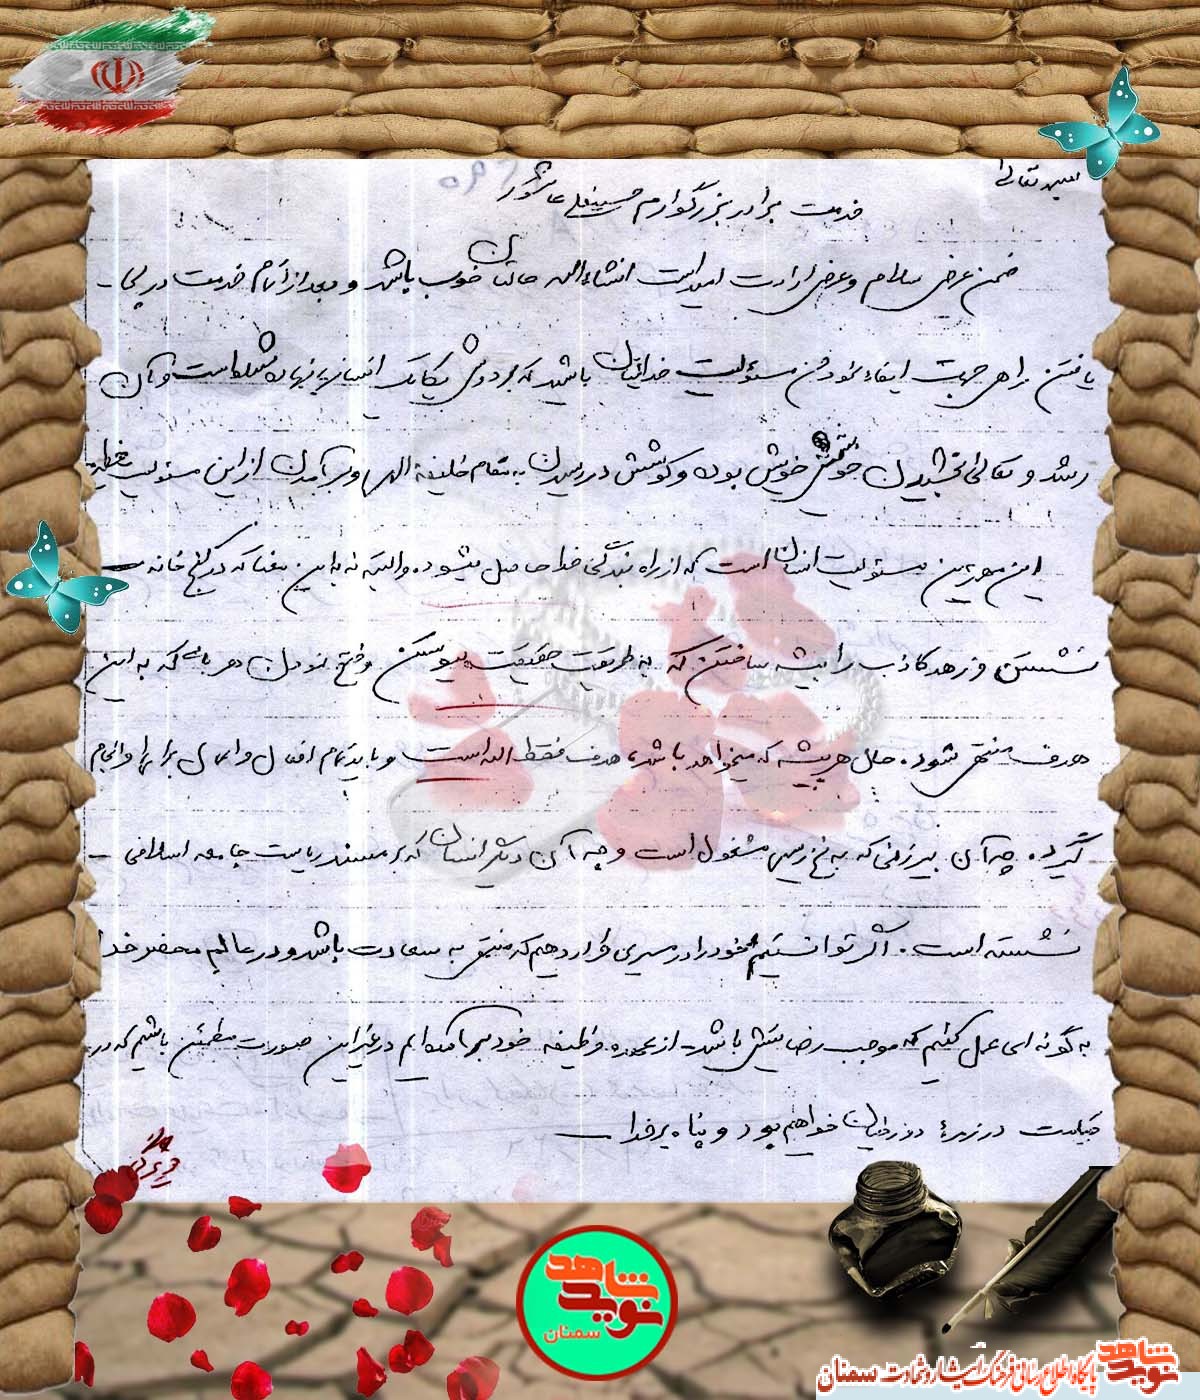 بسمه تعالی
خدمت برادر بزرگوارم حسینعلی عاشوری
ضمن عرض سلام و عرض ارادت امید است انشاءالله حالتان خوب باشد و بعد از اتمام خدمت در پی
یافتن راهی جهت ایفاء نمودن مسئولیت خدائیتان باشید که بر دوش یکایک انسانها نهاده شده است و آن
رشد و تعالی بخشیدن خویش بوده و کوشش در رسیدن به مقام خلیفة الهی و برآمدن از این مسئولیت خطیر
این مهمترین مسئولیت انسان است که از راه بندگی خدا حاصل میشود. والبته نه به این معنا که در کنج خانه
نشستن و زهد کاذب را پیشه ساختن که به طریقت حقیقت پیوستن و فتح نمودن هر بابی که به این
هدف منتهی شود. حال هر پیشه که میخواهد باشد، هدف فقط الله است و باید تمام افعال و اعمال برای او انجام
گیرد. چه آن پیرزنی که به نخ ریسی مشغول است و چه آن دیگر انسان که بر مسند ریاست جامعه اسلامی
نشسته است. اگر توانستیم خود را در مسیری قرار دهیم که منتهی به سعادت باشد و در عالم محضر خدا
به گونه ای عمل کنیم که موجب رضایتش باشد، از عهده وظیفه خود برآمده ایم در غیر این صورت مطمئن باشیم که در
قیامت در زمرۀ دوزخیان خواهیم بود و پناه بر خدا
شاهد
نوید
سمنان
نوید شاهد
پایگاه اطلاع رسانی فرهنگ ایثار و شهادت سمنان